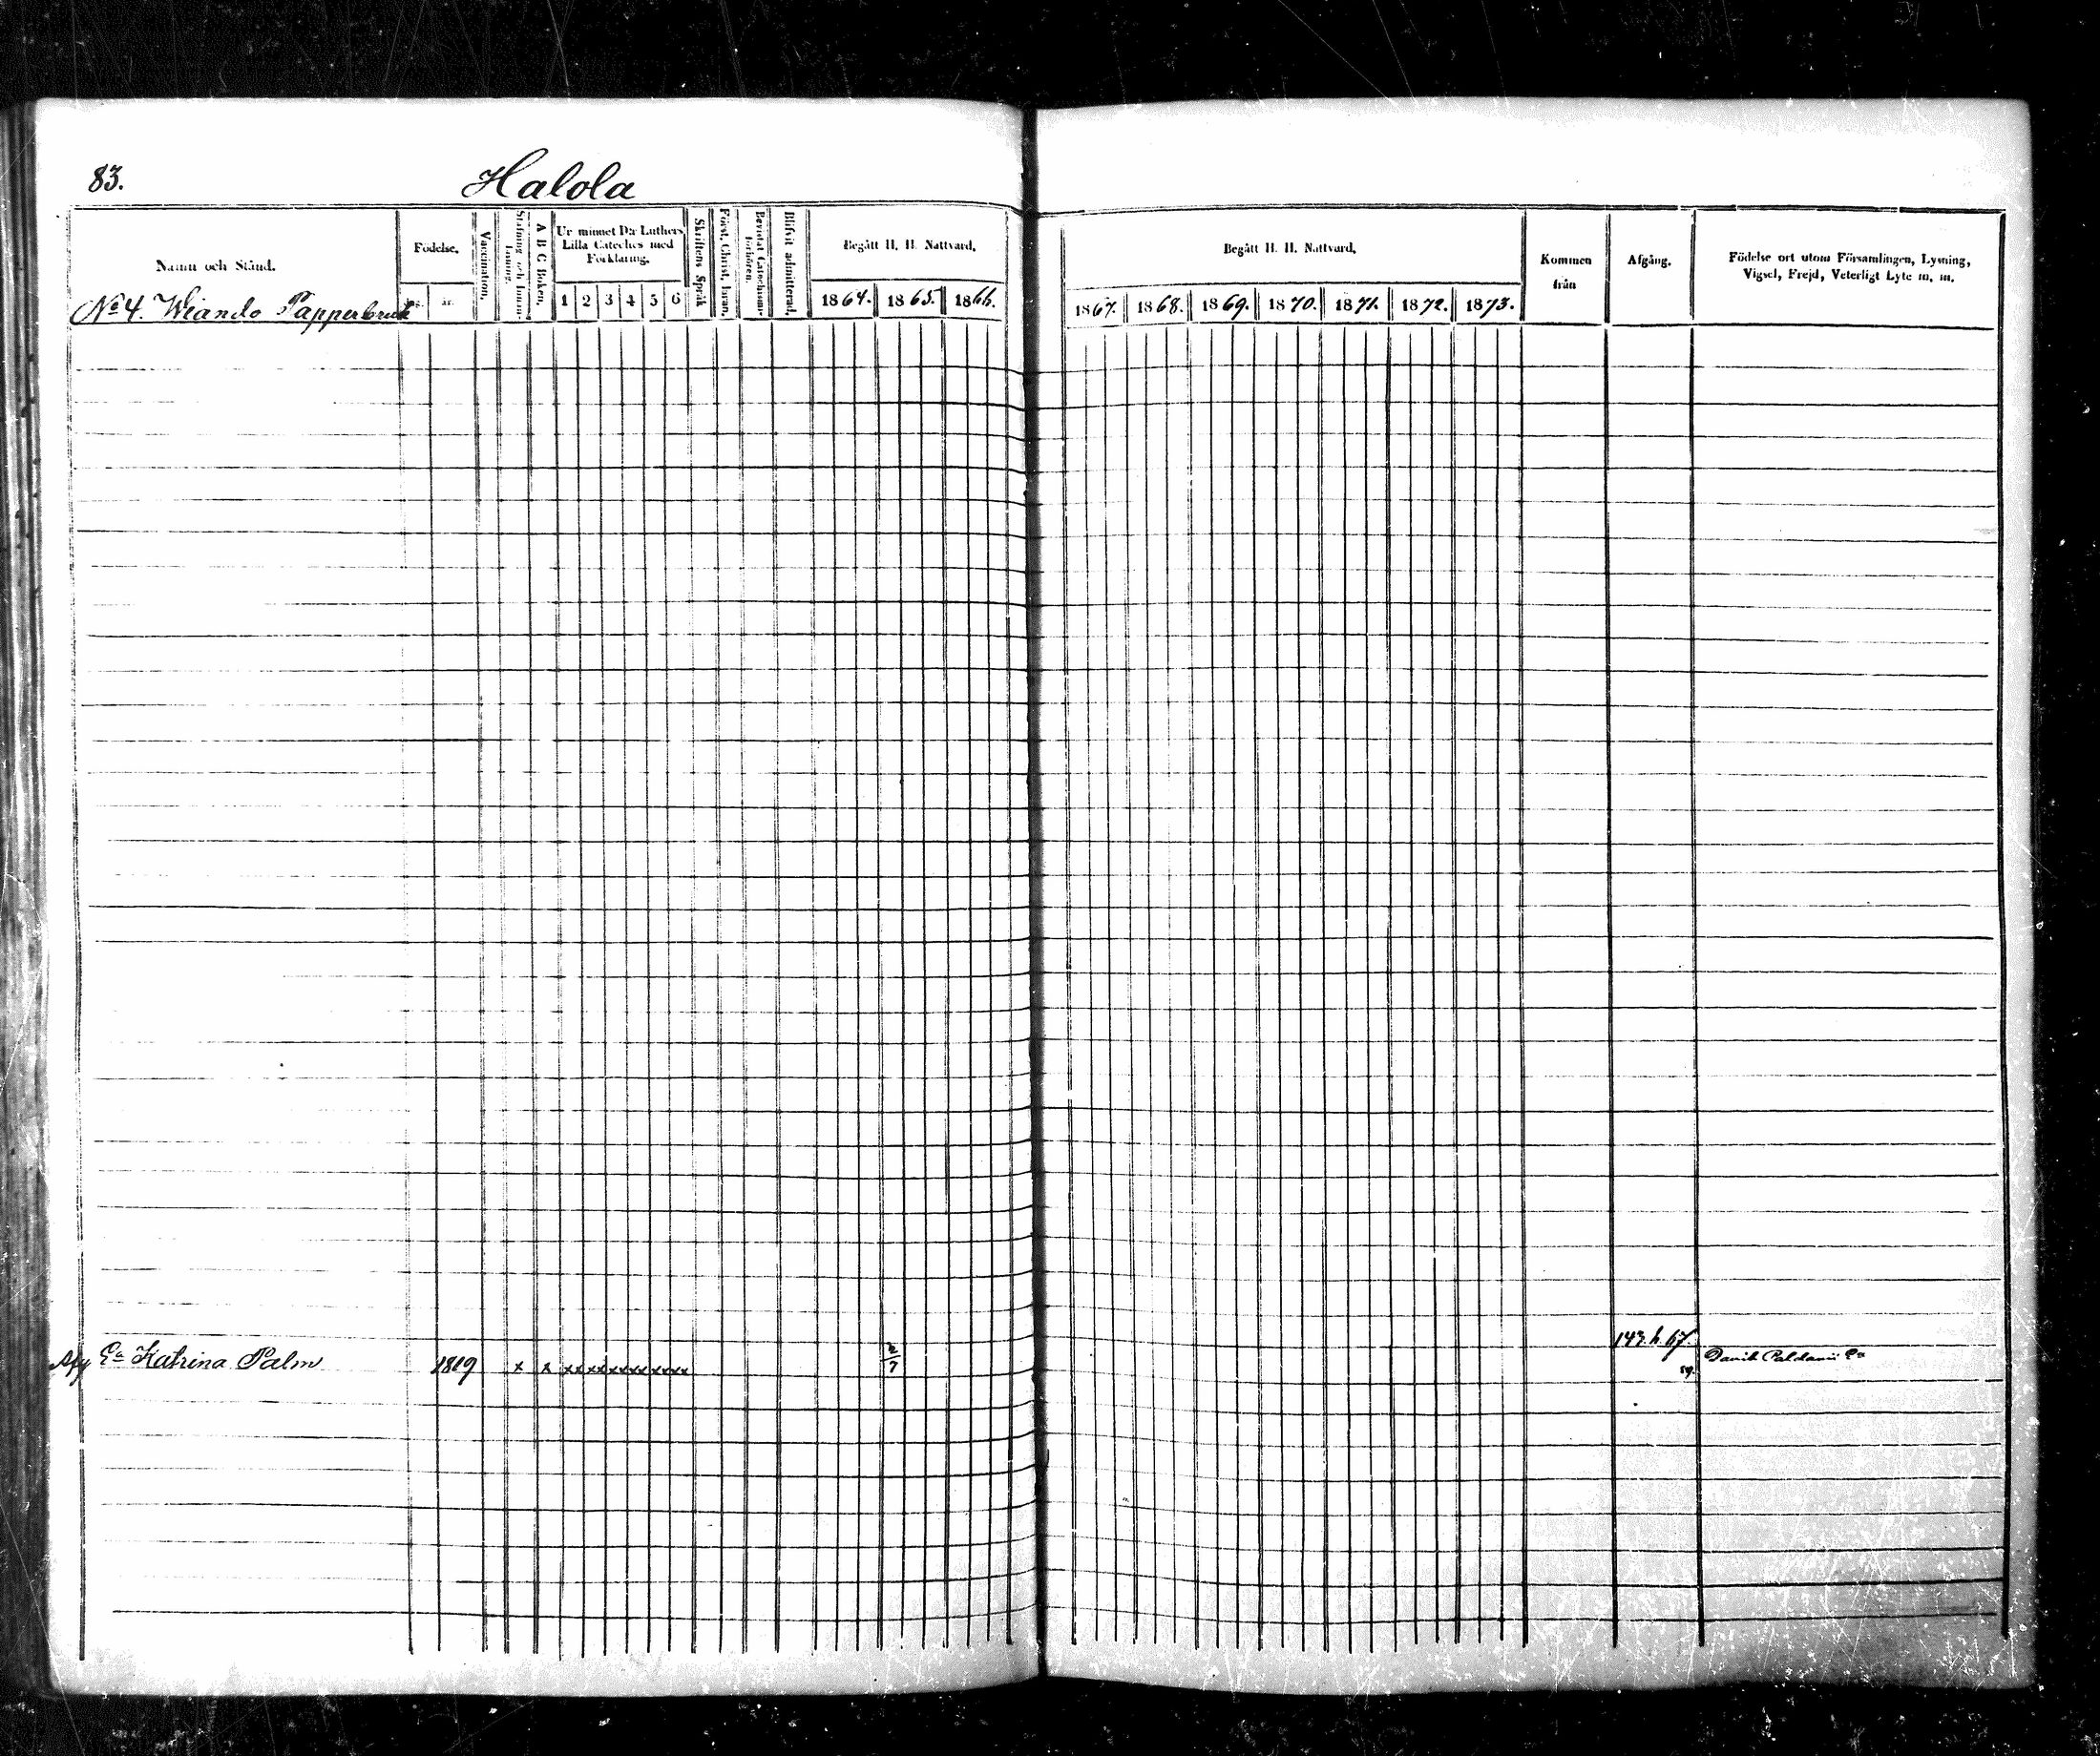 83.
Halola
Namn och Stånd.
Födelse.
år.
Vaccination.
Stafning och Innanläsning.
A B C Boken.
Ur minnet D:r Luthers
Lilla Cateches med
Förklaring.
1 2 3 4 5 6
Skriftens Språk
Först. Christ. Läran.
Bevistat Catechismi förhören.
Blifvit admitterad.
Begått H. H. Nattvard.
1864. 1865. 1866.
Begått H. H. Nattvard.
1867. 1868. 1869. 1870. 1871. 1872. 1873.
Kommen
från
Afgång.
Födelse ort utom Församlingen, Lysning,
Vigsel, Frejd, Veterligt Lyte m. m.
No 4. Wiando Papperbruk
143. h. 67.
Ea Katrina Palm 1819 x x xx xx xx xx xx xx 2/7 Paldanii Ea